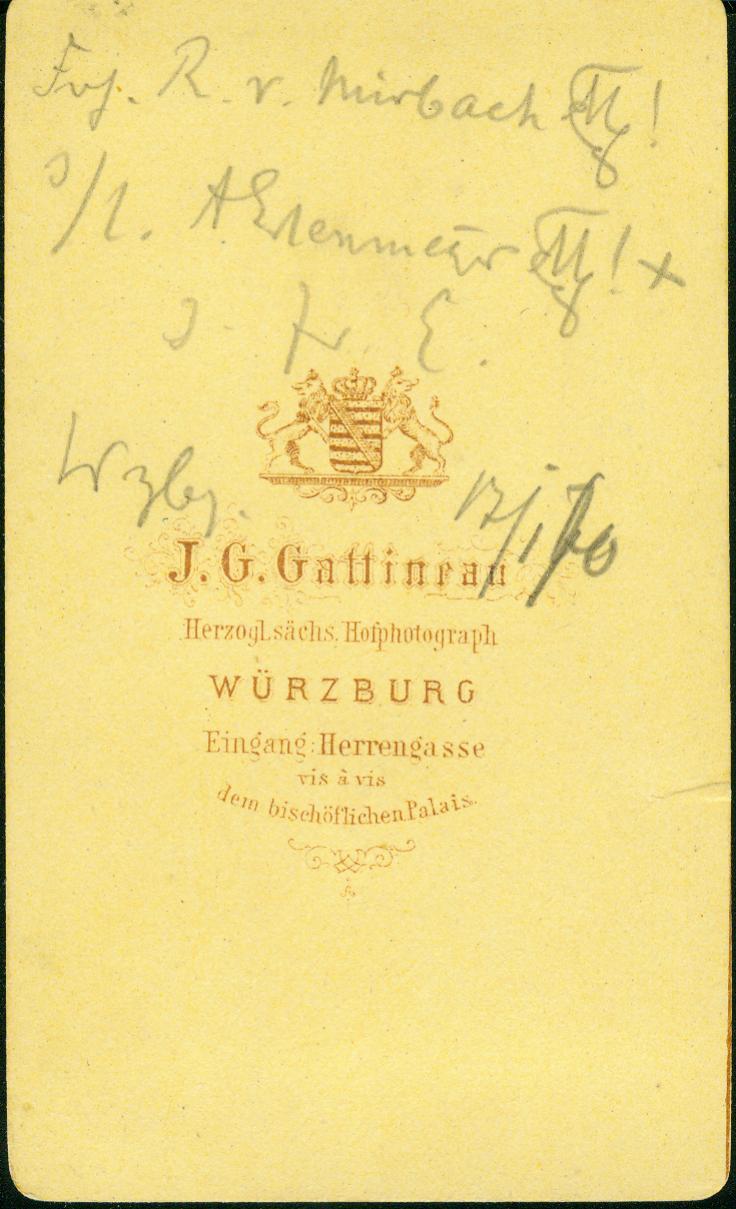 Frhr. R. v. Mirbach
s/l. A Erlenmeyer
z. fr. E.
Wzbg. 17/1 70
J. G. Gattineau
Herzogl. sächs. Hofphotograph
WÜRZBURG
Eingang: Herrengasse
vis à vis
dem bischöflichen Palais.